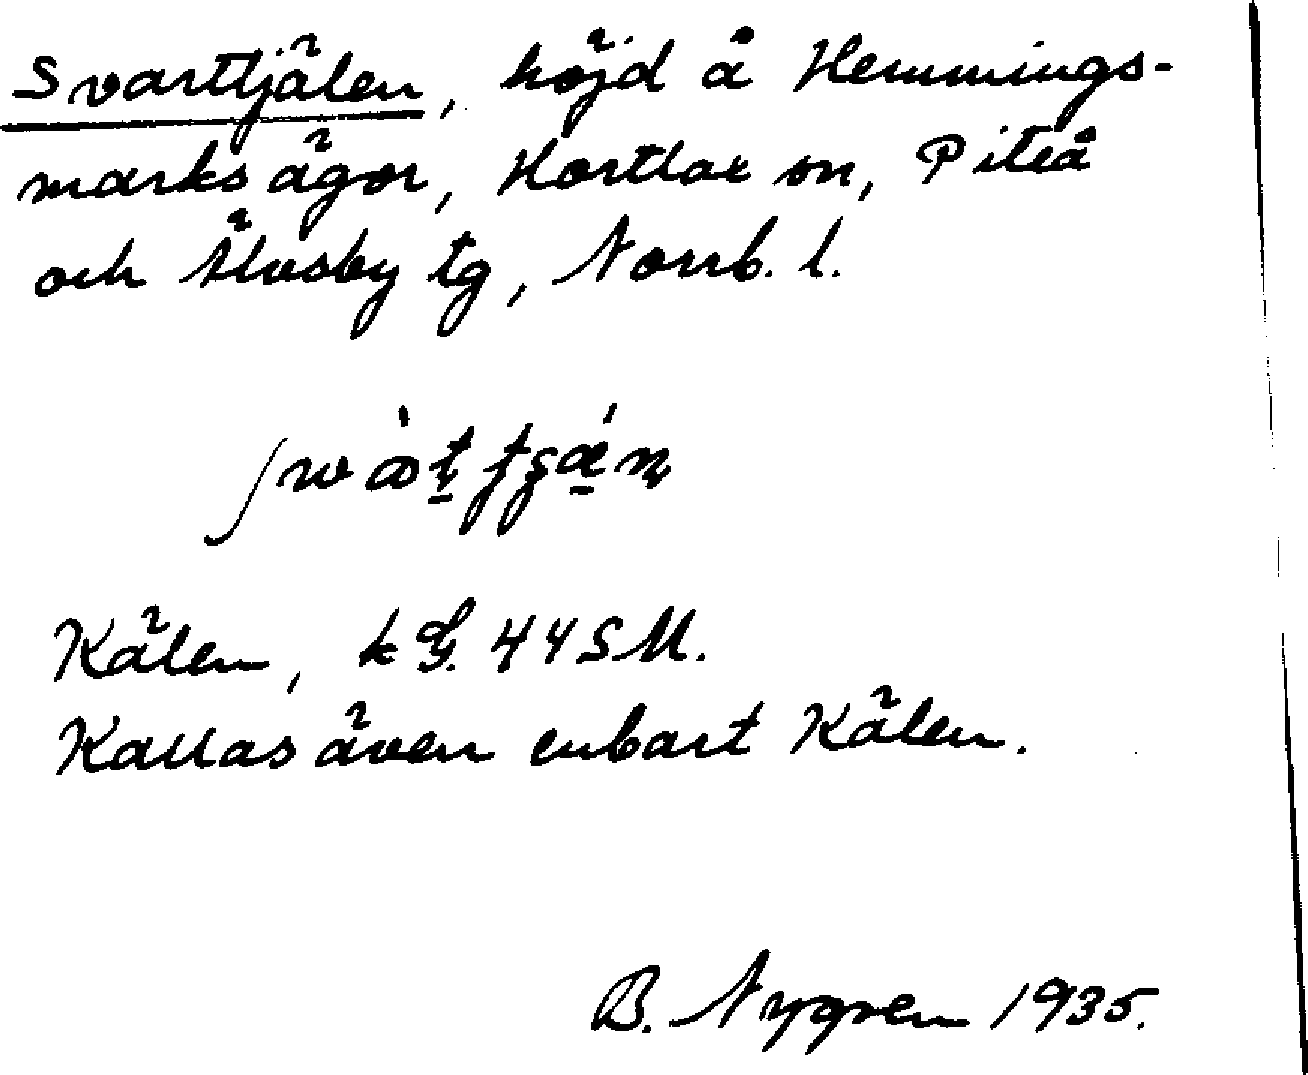 Svarttjälen, höjd å Hemmings-
marks ägor, Hortlax sn, Piteå
och Älvsby tg, Norrb. l.
Kälen, k G. 44 SM.
Kallas även enbart Kälen.
B. Nygren 1935.